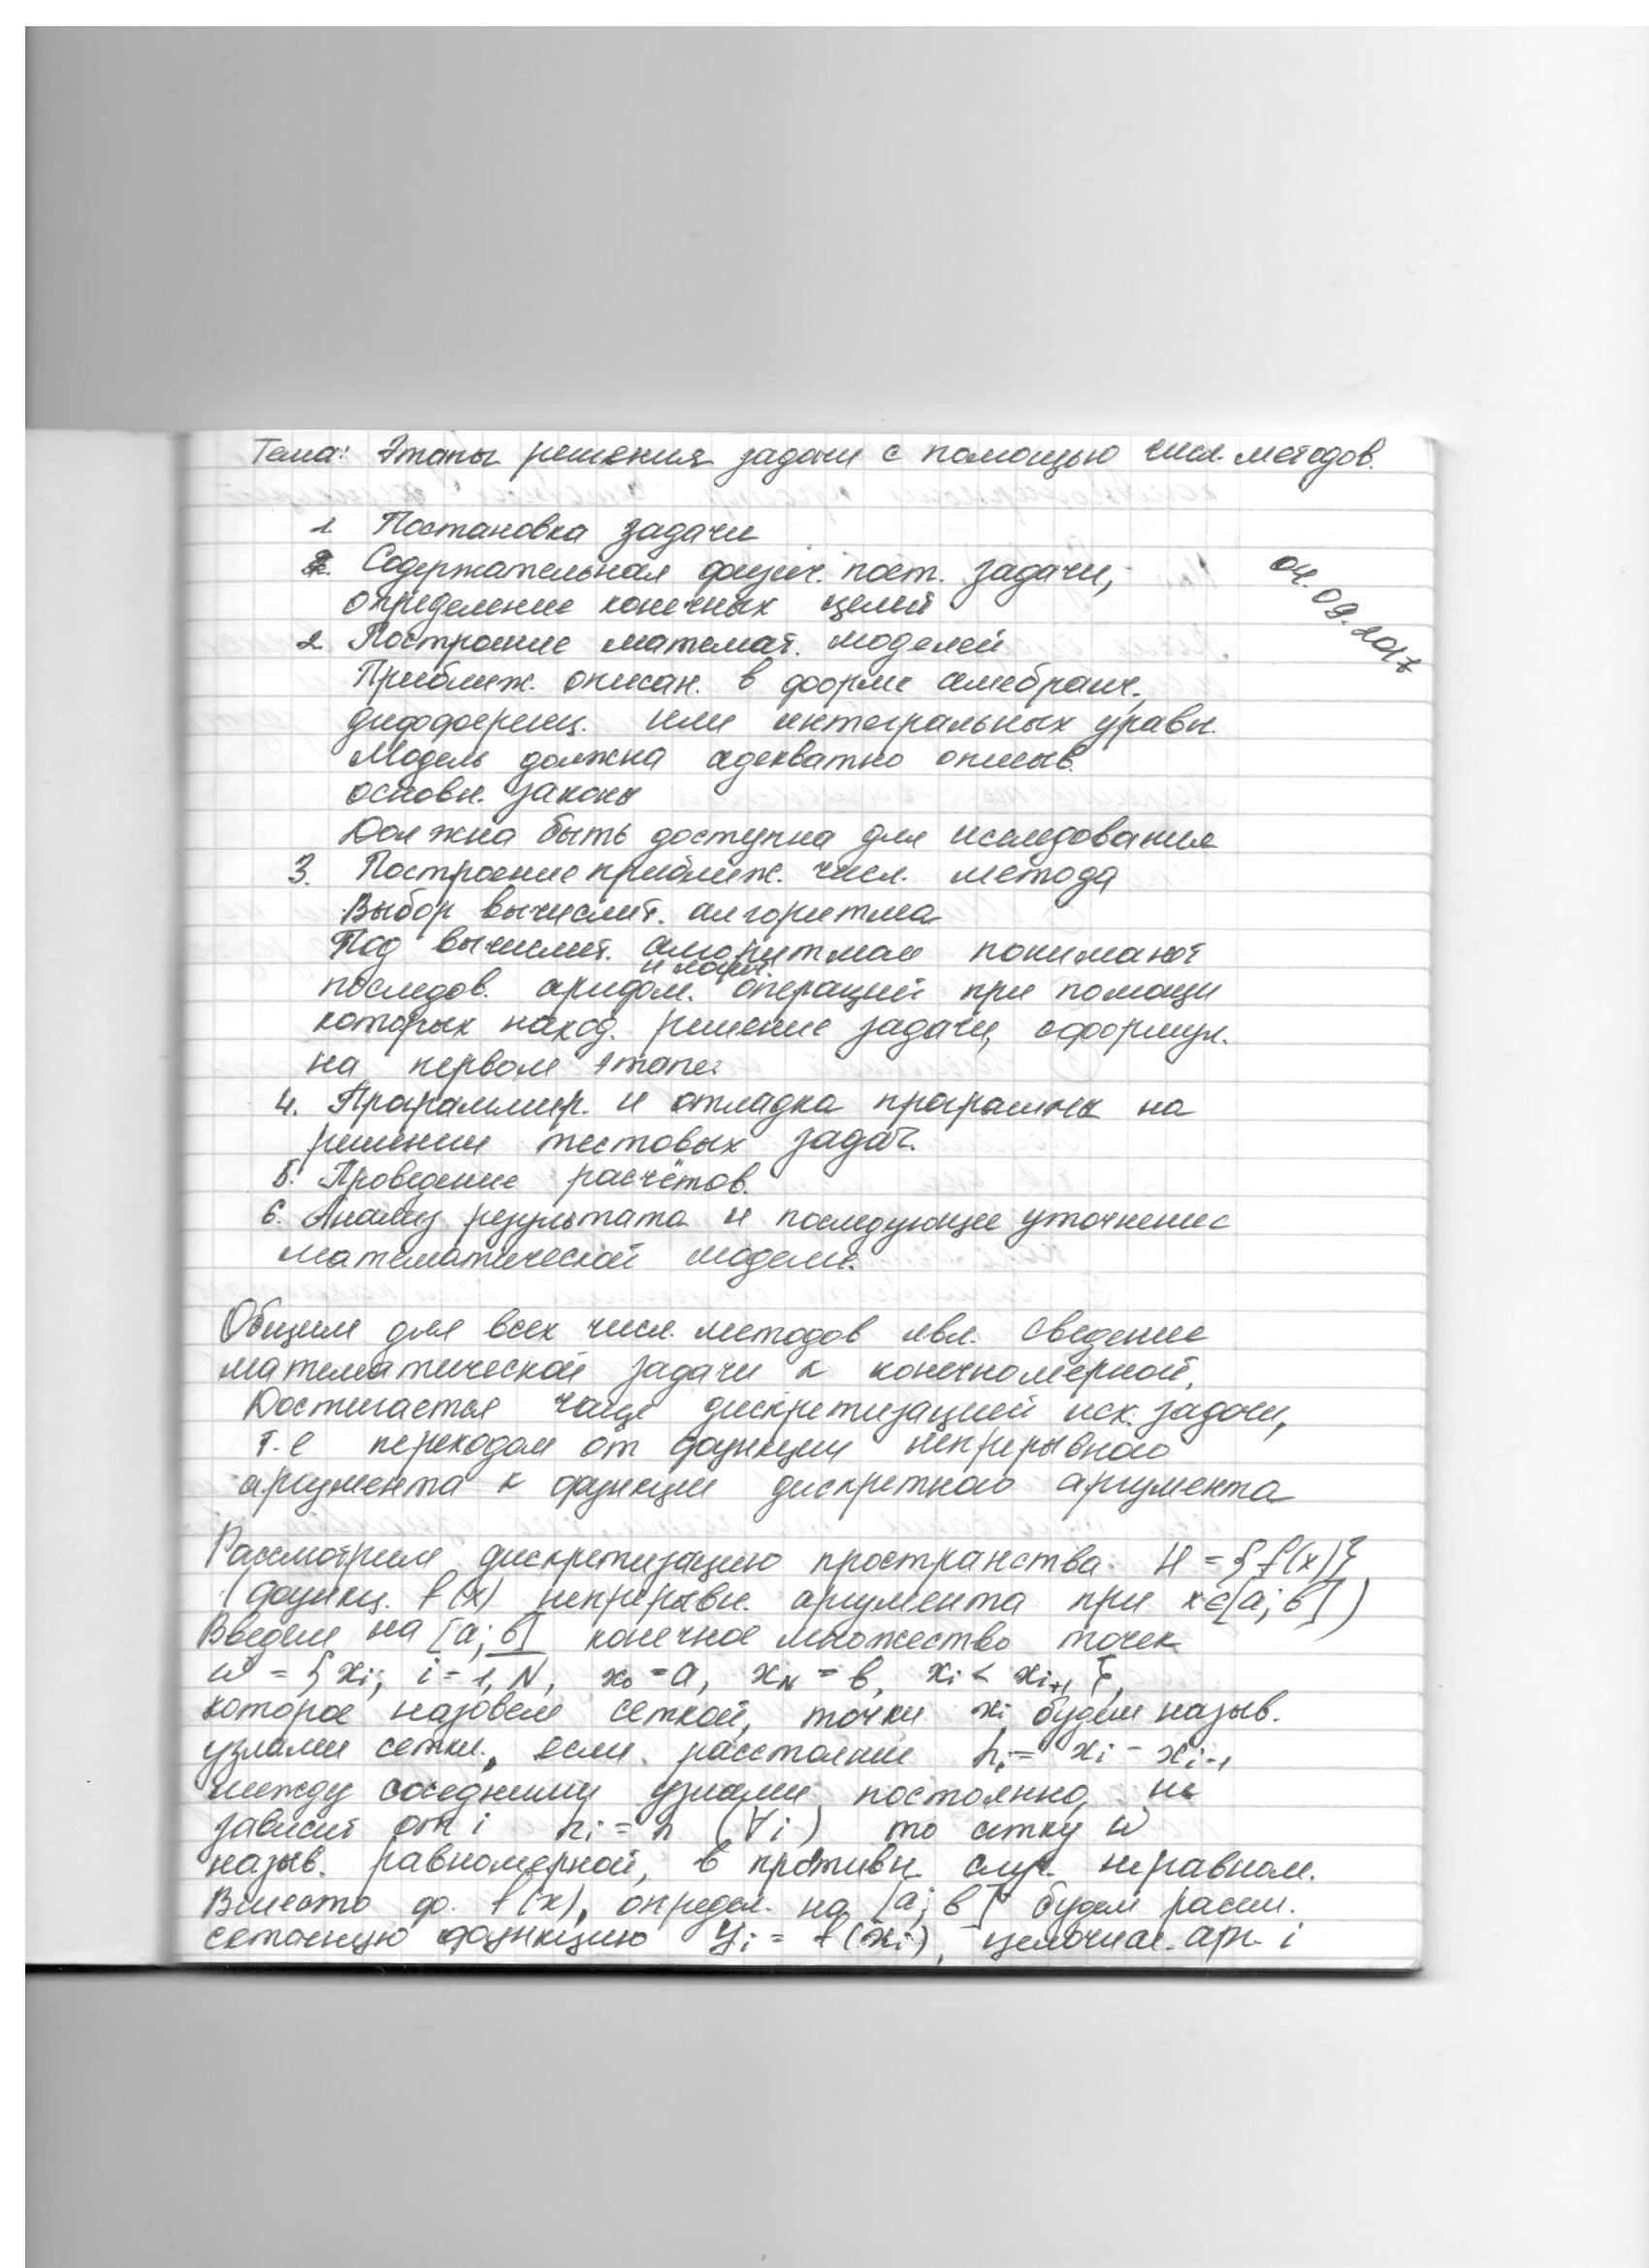 Тема: Этапы решения задачи с помощью числ. методов.
1 Постановка задачи
Содержательная физич. пост. задачи,
определение конечных целей
04.09.2017
2 Построение математ. моделей
Приближ. описан. в форме алгебраич.
дифференц. или интегральных уравн.
Модель должна адекватно описыв.
основн. законы
Должна быть доступна для исследования
3. Построение приближ. числ. метода
Выбор вычислит. алгоритма
Под вычислит. алгоритмам понимают
последов. арифм. и логич. операций при помощи
которых наход. решение задачи, сформул.
на первом этапе.
4. Программир. и отладка программы на
решении тестовых задач.
5. Проведение расчётов.
6. Анализ результата и последующее уточнение
математической модели.
Общим для всех числ. методов явл. сведение
математической задачи к конечномерной.
Достигается чаще дискретизацией исх. задачи,
т.е переходом от функции непрерывного
аргумента к функции дискретного аргумента
Рассмотрим дискретизацию пространства H = {f(x)}
(функц. f(x) непрерывн. аргумента при x∈[a; b])
Введем на [a; b] конечное множество точек
ω = {xi, i = 1, N, x0 = a, xN = b, xi < xi+1},
которое назовем сеткой, точки xi будем назыв.
узлами сетки, если расстояние hi = xi - xi-1
между соседними узлами постоянно, не
зависит от i hi = h (∀i) то сетку ω
назыв. равномерной, в противн. случ. неравном.
Вместо ф. f(x), определ. на [a; b] будем рассм.
сеточную функцию yi = f(xi), целочисл. арг. i